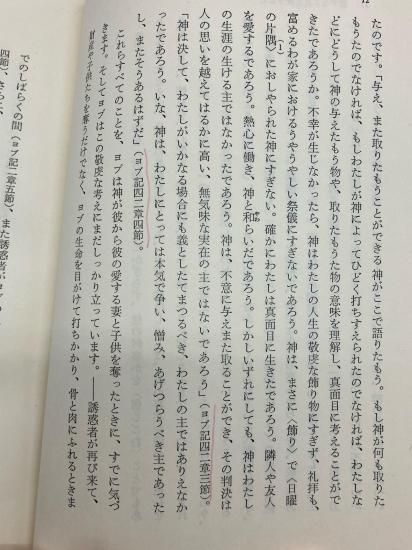 12
たのです。「与え、また取りたもうことができる神がここで語りたもう。もし神が何も取りた
もうたのでなければ、もしわたしが神によってひどく打ちすえられたのでなければ、わたしな
どにどうして神の与えたもう物や、取りたもうた物の意味を理解し、真面目に考えることがで
きたであろうか。不幸が生じなかったら、神はわたしの人生の敬虔な飾り物にすぎず、礼拝も、
富めるわが家におけるうやうやしい祭儀にすぎないであろう。神は、まさに〈飾り〉で〈日曜
の片隅〉におしやられた神にすぎない。確かにわたしは真面目に生きたであろう。隣人や友人
を愛するであろう。熱心に働き、神と和らいだであろう。しかしいずれにしても、神はわたし
の生涯の生ける主ではなかったであろう。神は、不意に与えまた取ることができ、その判決は
人の思いを越えてはるかに高い、無気味な実在の主ではないであろう」(ヨブ記四二章三節)。
「神は決して、わたしがいかなる場合にも義としたてまつるべき、わたしの主ではありえなか
ったであろう。いな、神は、わたしにとっては本気で争い、憎み、あげつらうべき主であった
し、またそうあるはずだ」(ヨブ記四二章四節)。
これらすべてのことを、ヨブは神が彼から彼の愛する妻と子供を奪ったときに、すでに気づ
きます。そしてヨブはこの敬虔な考えにまだしっかり立っています。――誘惑者が再び来て、
財産や子供たちを奪うだけでなく、ヨブの生命を目がけて打ちかかり、骨と肉にふれるときま
でのしばらくの間(ヨブ記二章五節)、また誘惑者が
四節)、さらに